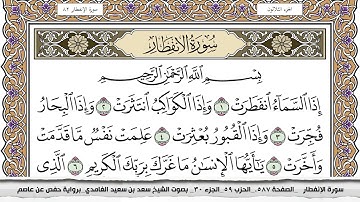 الجزء الثلاثون
سورة الإنفطار ٨٢
سُورَةُ الانفِطَار
بِسْمِ اللَّهِ الرَّحْمَٰنِ الرَّحِيمِ
إِذَا السَّمَاءُ انفَطَرَتْ ١ وَإِذَا الْكَوَاكِبُ انتَثَرَتْ ٢ وَإِذَا الْبِحَارُ
فُجِّرَتْ ٣ وَإِذَا الْقُبُورُ بُعْثِرَتْ ٤ عَلِمَتْ نَفْسٌ مَّا قَدَّمَتْ
وَأَخَّرَتْ ٥ يَا أَيُّهَا الْإِنسَانُ مَا غَرَّكَ بِرَبِّكَ الْكَرِيمِ ٦ الَّذِي
سورة الإنفطار _الصفحة ٥٨٧. الحزب ٥٩. الجزء ٣٠_ بصوت الشيخ سعد بن سعيد الغامدي _برواية حفص عن عاصم